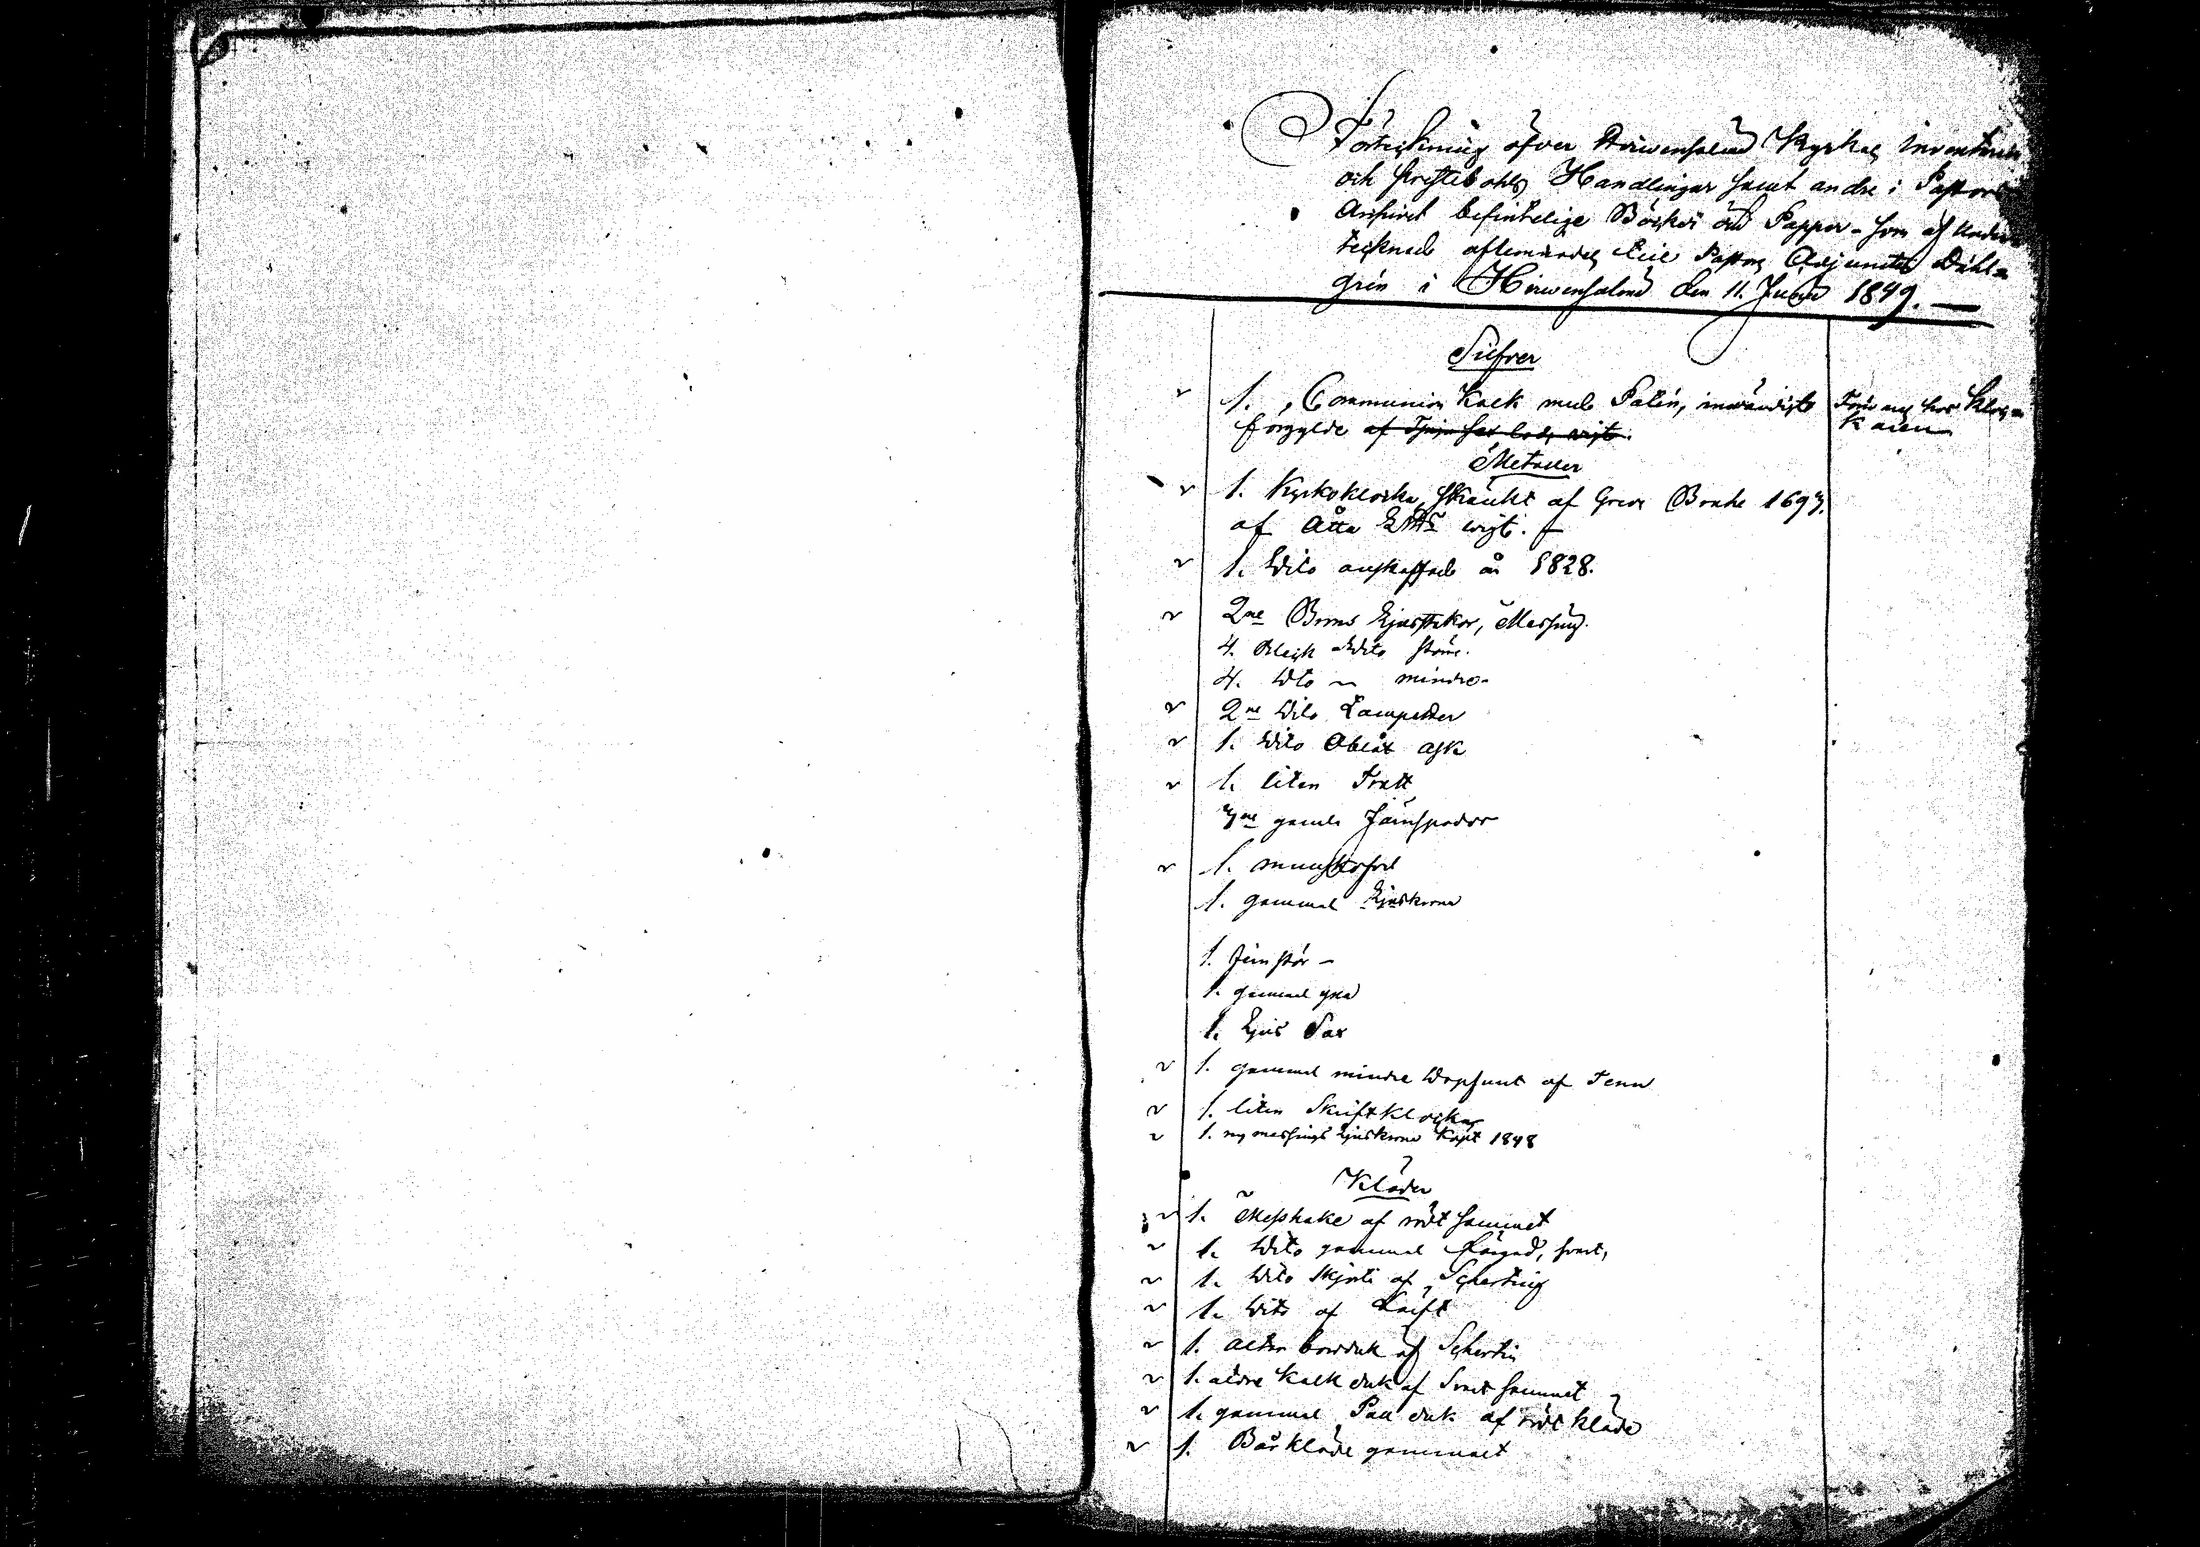 Förteckning öfver Hirwensalmi Kyrkas Inventarier
och Prestebohls Handlingar samt andre i Pastors
Archivet befinteliga Böcker och Papper som af under-
tecknad aflemnades till Pastors Adjuncten Dahl-
grén i Hirwensalmi den 11. Junii 1849.
Silfver
1. Communion Kalk med Patén, inwändigt
förgylde af
Förvaras hos Kloc-
karen
Metaller
1. Kyrkoklocka, skänkt af Greve Brahe 1697.
af Åtta wigt.
1. Dito anskaffad år 1828.
2ne Ljusstakar, Messing.
4. Bleck Dito större.
4. Dto mindre
2ne Dito Lampetter
1. Dito Oblat ask
1. liten Tratt
gamla Järnspador
1.
1. gammal Ljuskrona
1. Järnstör
1. gammal yxa
1. Ljus Sax
1. gammal mindre Dopfunt af Tenn
1. liten Skriftklocka
1. ny messings Ljuskrona köpt 1848
Kläder
1. Messhake af rödt sammet
1. Dito gammal färgad, svart,
1. Dito skjorta af Scherting
1. Dito af Lärft
1. Altar bordduk af Scherting
1. äldre Kalk duk af Svart sammet
1. gammal Pall duk af rödt kläde
1. Bårkläde gammalt